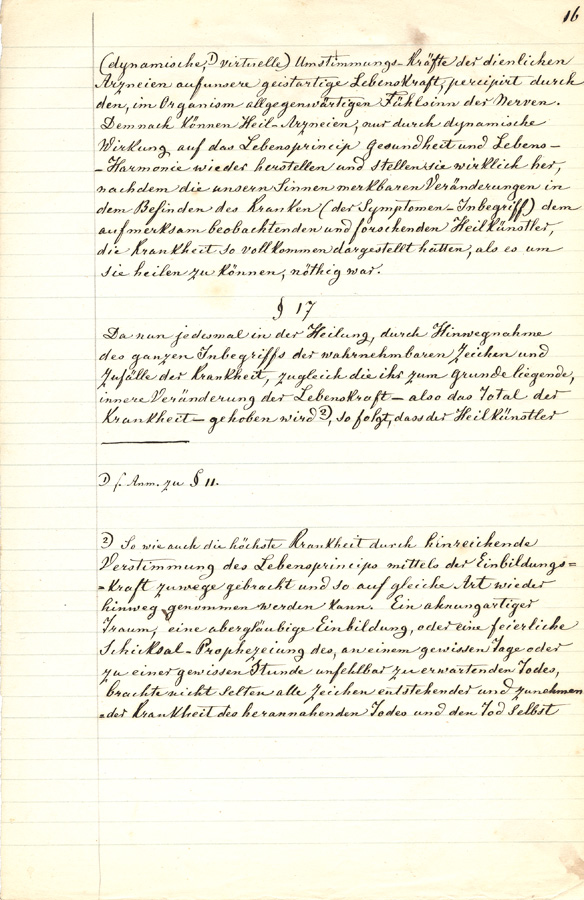 16
(dynamische, 1) virtuelle) Umstimmungs-Kräfte der dienlichen
Arzneien auf unsere geistartige Lebenskraft, percipirt durch
den, im Organism allgegenwärtigen Fühlsinn der Nerven.
Demnach können Heil-Arzneien, nur durch dynamische
Wirkung auf das Lebensprincip Gesundheit und Lebens-
-Harmonie wieder herstellen und stellen sie wirklich her,
nachdem die unsern Sinnen merkbaren Veränderungen in
dem Befinden des Kranken (der Symptomen-Inbegriff) dem
aufmerksam beobachtenden und forschenden Heilkünstler,
die Krankheit so vollkommen dargestellt hatten, als es um
sie heilen zu können, nöthig war.
§ 17
Da nun jedesmal in der Heilung, durch Hinwegnahme
des ganzen Inbegriffs der wahrnehmbaren Zeichen und
Zufälle der Krankheit, zugleich die ihr zum Grunde liegende,
innere Veränderung der Lebenskraft – also das Total der
Krankheit – gehoben wird 2), so folgt, dass der Heilkünstler
1) s. Anm. zu § 11.
2) So wie auch die höchste Krankheit durch hinreichende
Verstimmung des Lebensprincips mittels der Einbildungs=
=kraft zuwege gebracht und so auf gleiche Art wieder
hinweg genommen werden kann. Ein ahnungartiger
Traum, eine abergläubige Einbildung, oder eine feierliche
Schicksal-Prophezeiung des, an einem gewissen Tage oder
zu einer gewissen Stunde unfehlbar zu erwartenden Todes,
brachte nicht selten alle Zeichen entstehender und zunehmen
=der Krankheit des herannahenden Todes und den Tod selbst